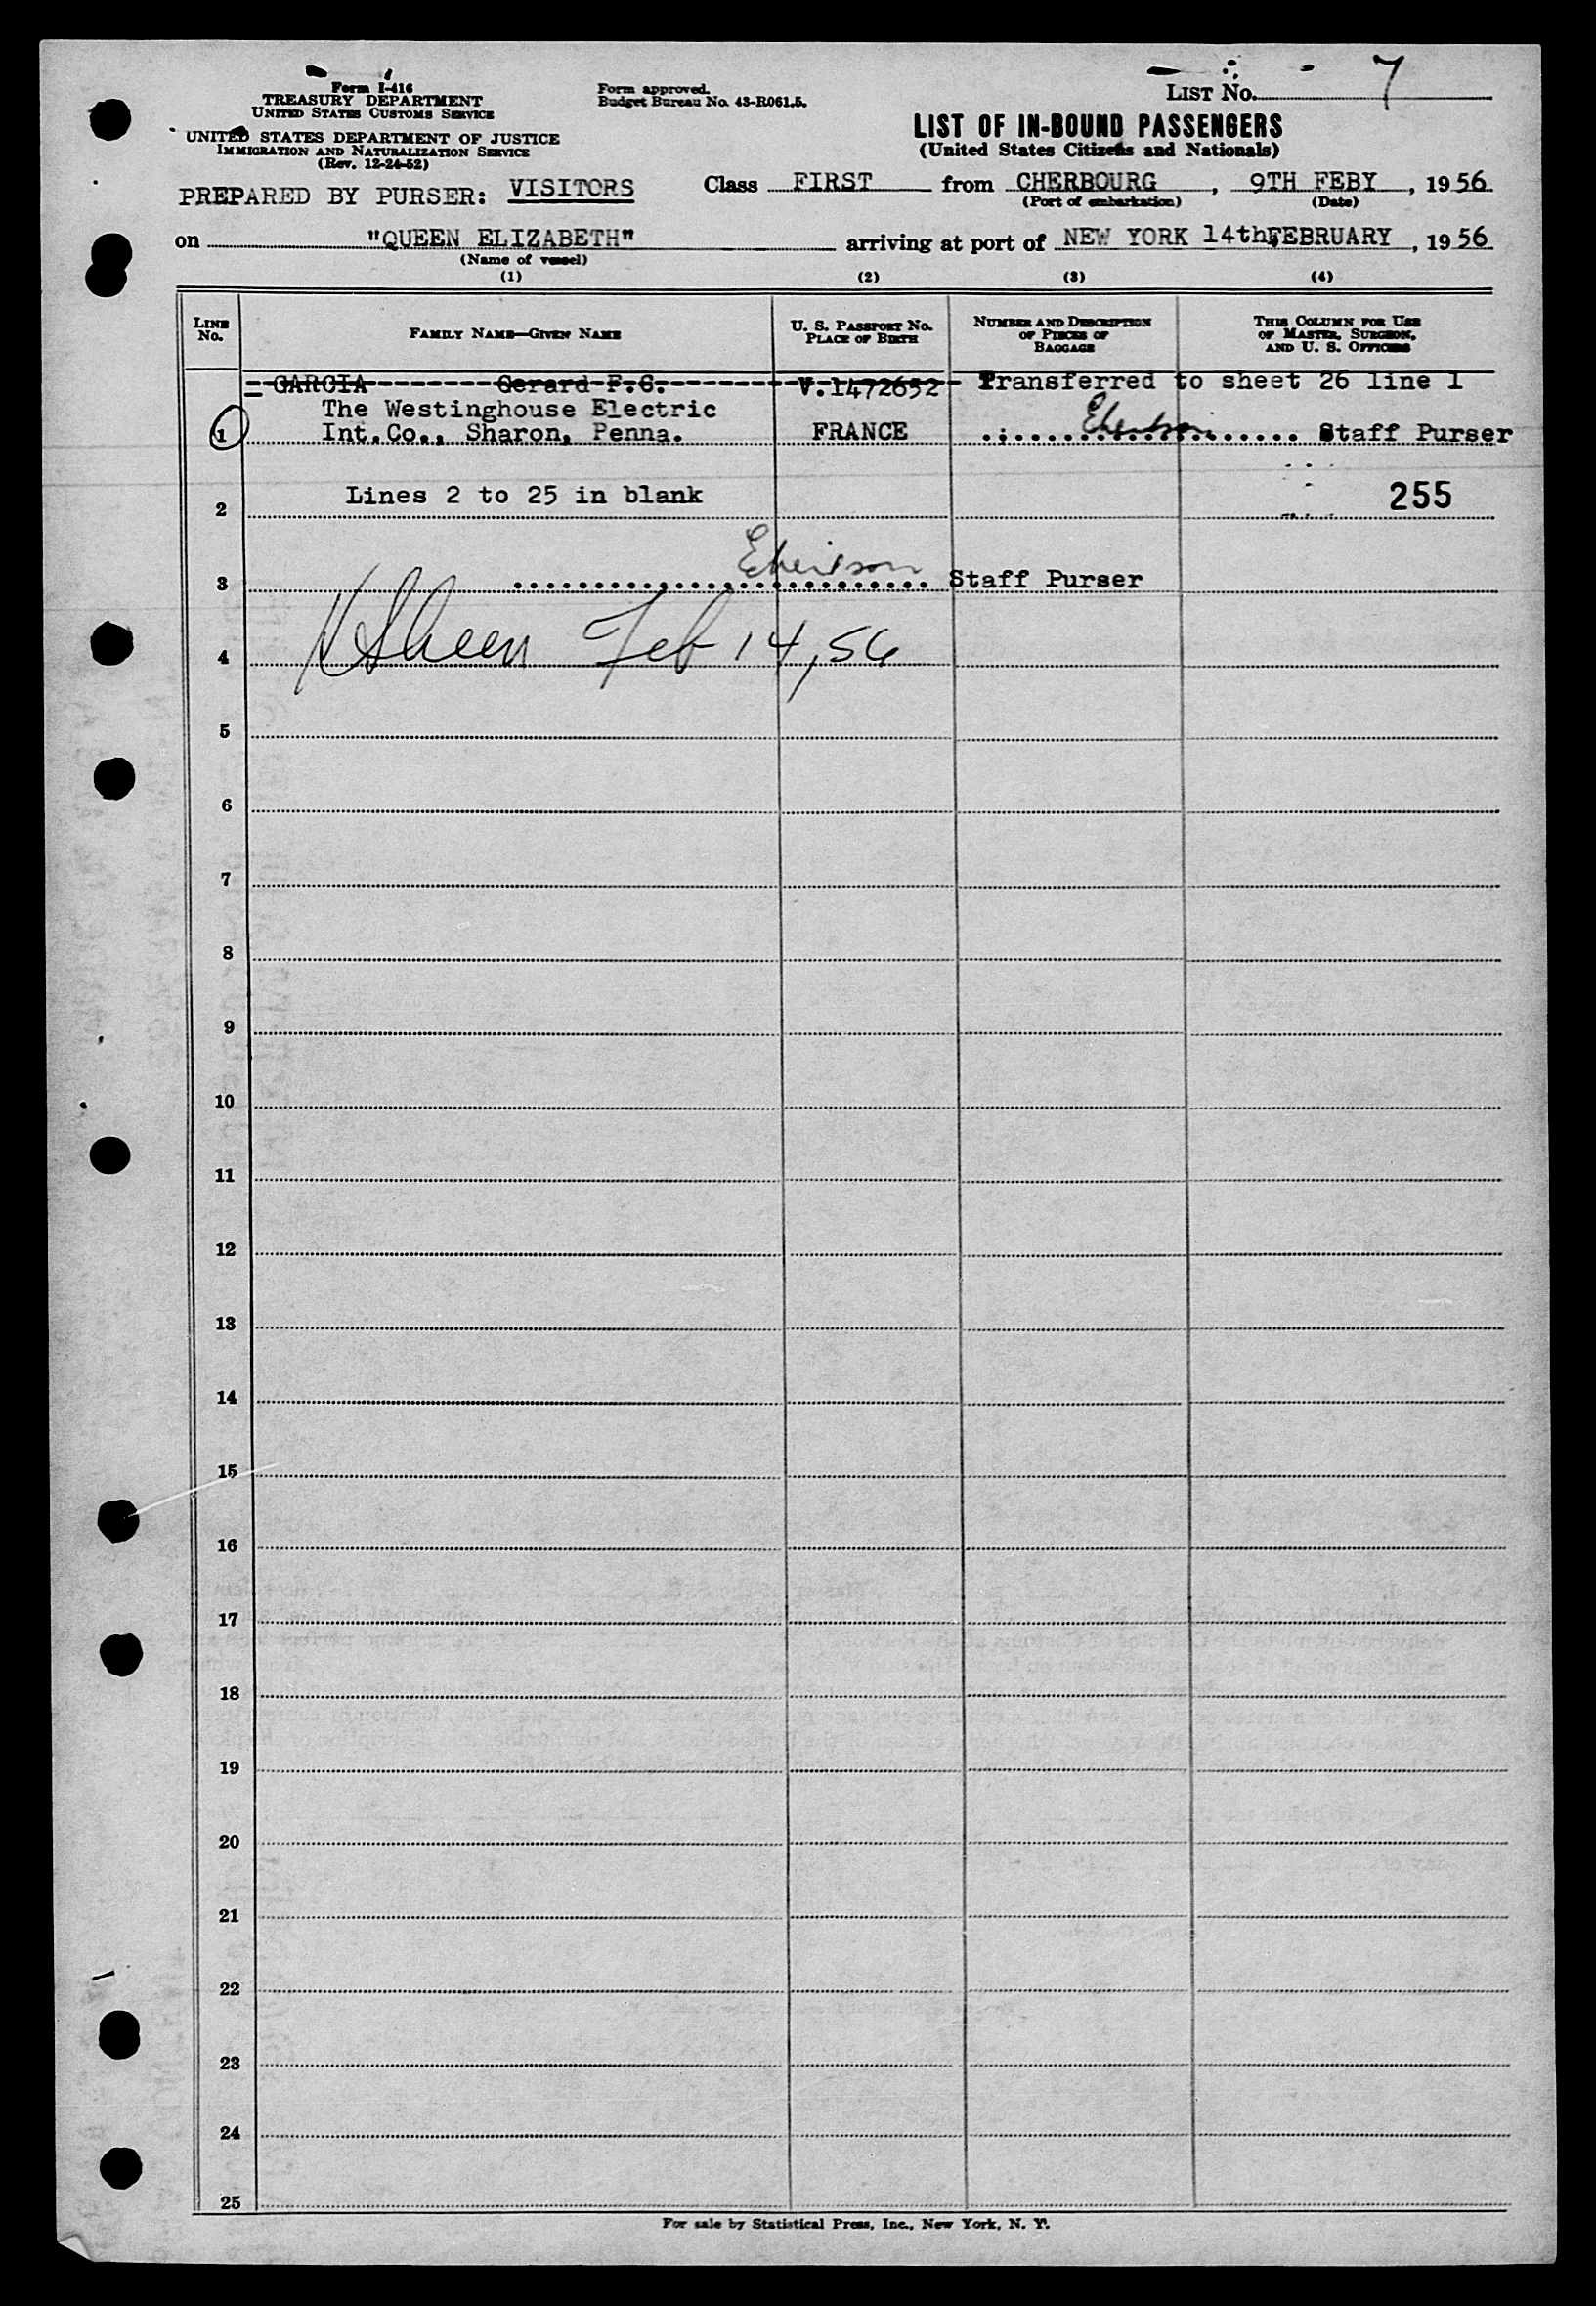 Form I-416
TREASURY DEPARTMENT
UNITED STATES CUSTOMS SERVICE
UNITED STATES DEPARTMENT OF JUSTICE
IMMIGRATION AND NATURALIZATION SERVICE
(Rev. 12-24-52)
Form approved.
Budget Bureau No. 43-R061.5.
LIST NO. 7
LIST OF IN-BOUND PASSENGERS
(United States Citizens and Nationals)
PREPARED BY PURSER: VISITORS Class FIRST from CHERBOURG, 9TH FEBY, 1956
(Port of embarkation) (Date)
on "QUEEN ELIZABETH" arriving at port of NEW YORK 14th FEBRUARY, 1956
(Name of vessel)
(1) (2) (3) (4)
LINE No. FAMILY NAME—GIVEN NAME U. S. PASSPORT NO. PLACE OF BIRTH NUMBER AND DESCRIPTION OF PIECES OF BAGGAGE THIS COLUMN FOR USE OF MASTER, SURGEON, AND U. S. OFFICERS
GARCIA Gerard F.G. V.1472652 Transferred to sheet 26 line 1
The Westinghouse Electric
1 Int.Co., Sharon, Penna. FRANCE Staff Purser
2 Lines 2 to 25 in blank 255
3 Staff Purser
4 Feb 14, 56
5
6
7
8
9
10
11
12
13
14
15
16
17
18
19
20
21
22
23
24
25
For sale by Statistical Press, Inc., New York, N. Y.